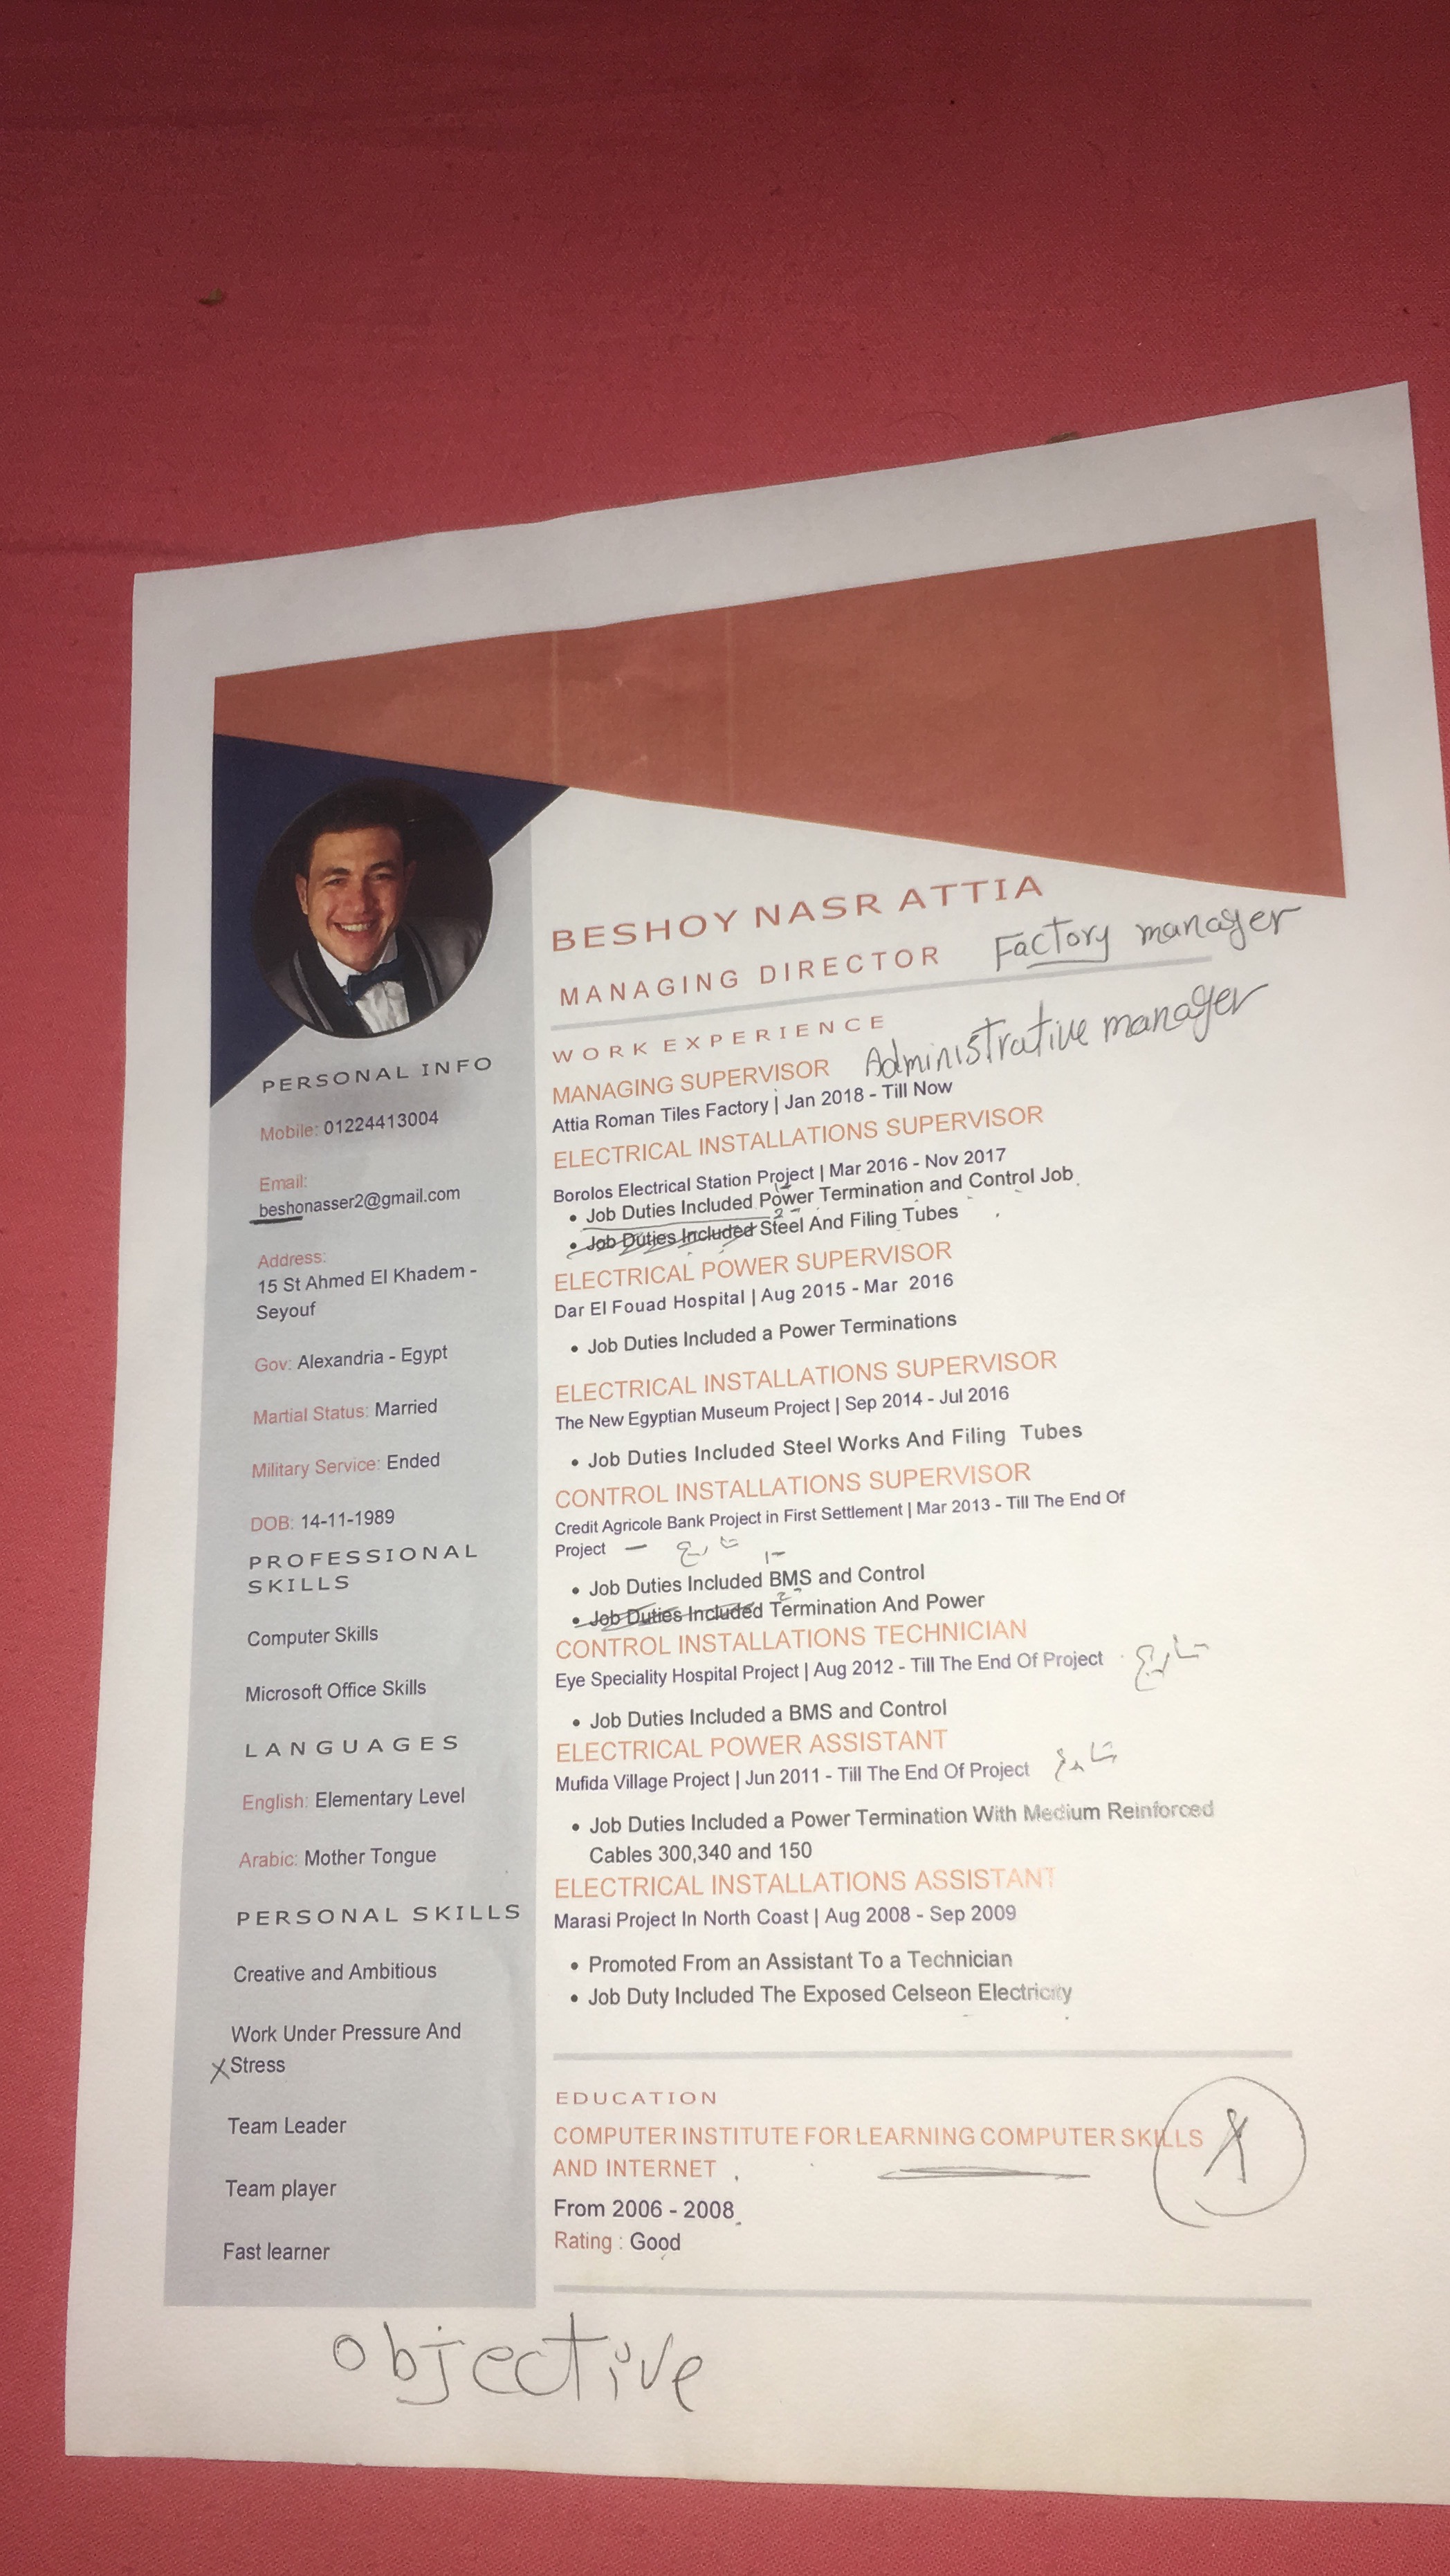 BESHOY NASR ATTIA
MANAGING DIRECTOR Factory manager
PERSONAL INFO
Mobile: 01224413004
Email:
beshonasser2@gmail.com
Address:
15 St Ahmed El Khadem -
Seyouf
Gov: Alexandria - Egypt
Martial Status: Married
Military Service: Ended
DOB: 14-11-1989
PROFESSIONAL
SKILLS
Computer Skills
Microsoft Office Skills
LANGUAGES
English: Elementary Level
Arabic: Mother Tongue
PERSONAL SKILLS
Creative and Ambitious
Work Under Pressure And
X Stress
Team Leader
Team player
Fast learner
WORK EXPERIENCE
MANAGING SUPERVISOR Administrative manager
Attia Roman Tiles Factory | Jan 2018 - Till Now
ELECTRICAL INSTALLATIONS SUPERVISOR
Borolos Electrical Station Project | Mar 2016 - Nov 2017
• Job Duties Included Power Termination and Control Job
2-
• Job Duties Included Steel And Filing Tubes
ELECTRICAL POWER SUPERVISOR
Dar El Fouad Hospital | Aug 2015 - Mar 2016
• Job Duties Included a Power Terminations
ELECTRICAL INSTALLATIONS SUPERVISOR
The New Egyptian Museum Project | Sep 2014 - Jul 2016
• Job Duties Included Steel Works And Filing Tubes
CONTROL INSTALLATIONS SUPERVISOR
Credit Agricole Bank Project in First Settlement | Mar 2013 - Till The End Of
Project – تاريخ
1-
• Job Duties Included BMS and Control
2-
• Job Duties Included Termination And Power
CONTROL INSTALLATIONS TECHNICIAN
Eye Speciality Hospital Project | Aug 2012 - Till The End Of Project تاريخ
• Job Duties Included a BMS and Control
ELECTRICAL POWER ASSISTANT
Mufida Village Project | Jun 2011 - Till The End Of Project تاريخ
• Job Duties Included a Power Termination With Medium Reinforced
Cables 300,340 and 150
ELECTRICAL INSTALLATIONS ASSISTANT
Marasi Project In North Coast | Aug 2008 - Sep 2009
• Promoted From an Assistant To a Technician
• Job Duty Included The Exposed Celseon Electricity
EDUCATION
COMPUTER INSTITUTE FOR LEARNING COMPUTER SKILLS
AND INTERNET
X
From 2006 - 2008
Rating : Good
objective